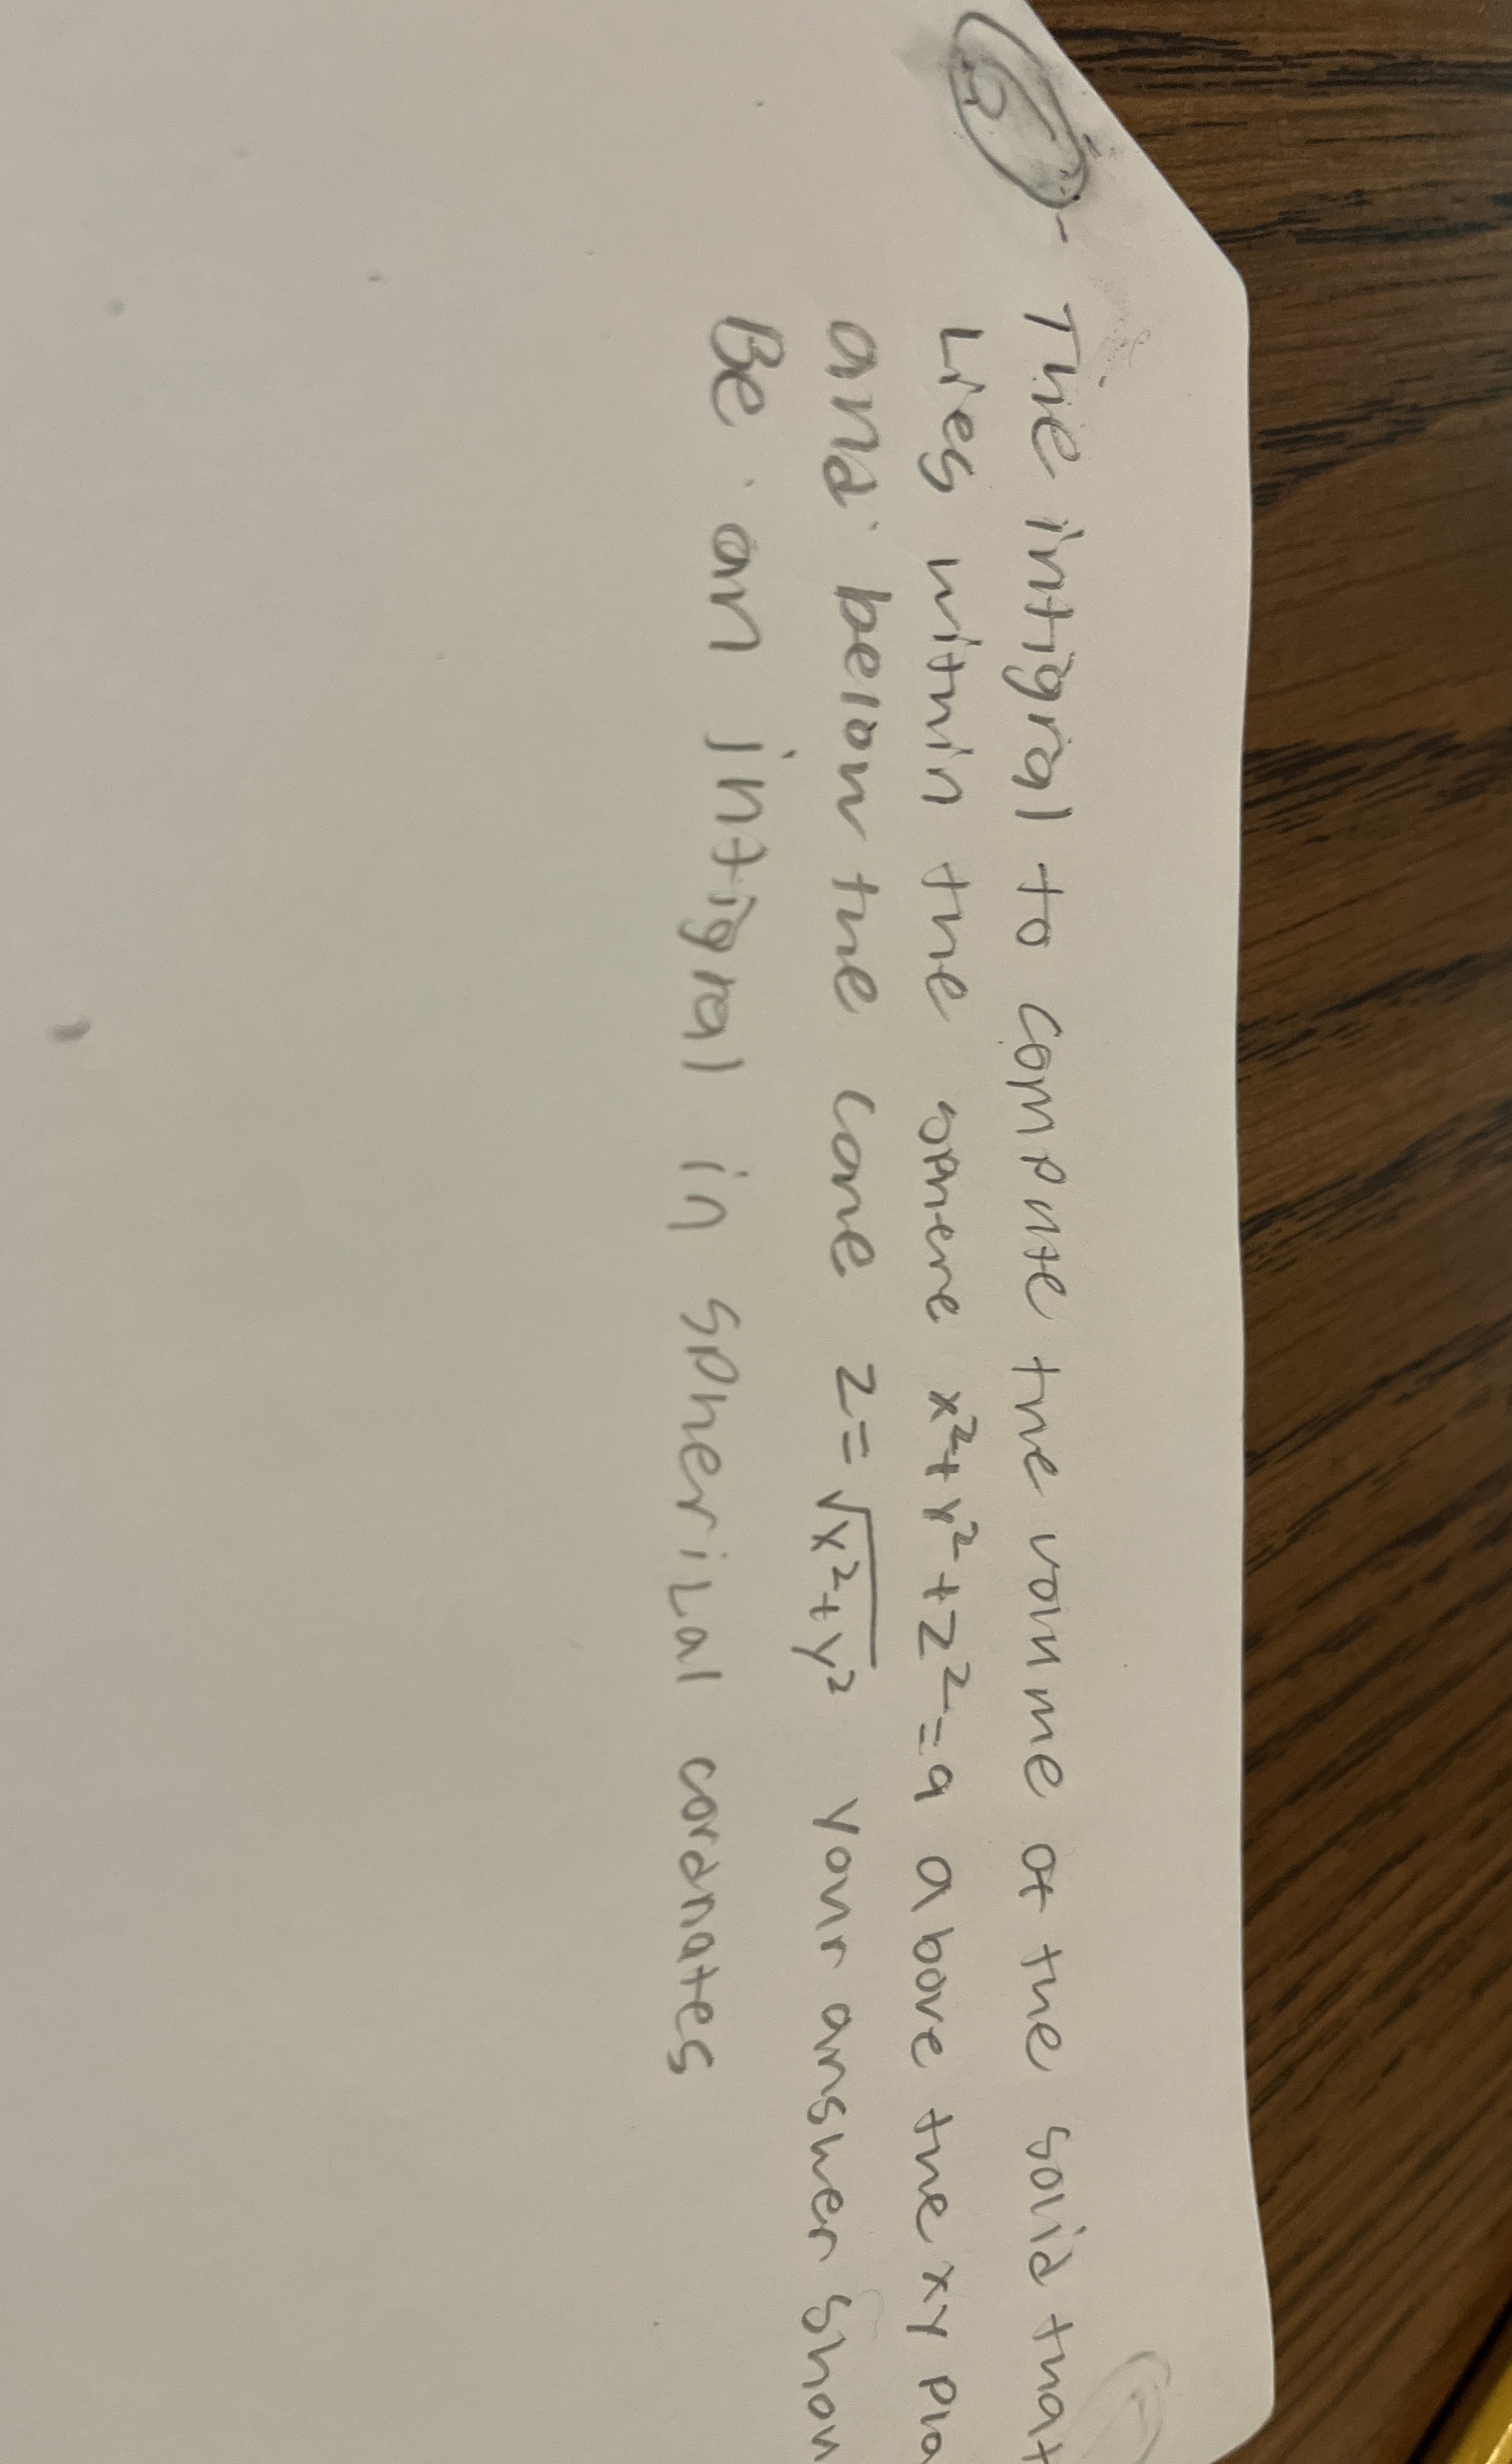 6 - The intigral to compute the volume of the solid that
Lies within the sphere x²+y²+z²=9 above the xy pla
and below the cone z=√x²+y² your answer shou
Be an intigral in spherical cordnates